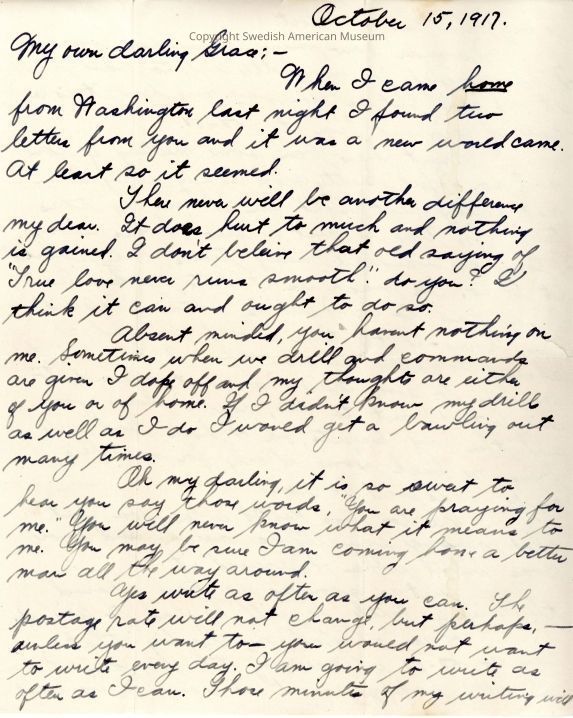 October 15, 1917.
Copyright Swedish American Museum
My own darling Grace:-
When I came home
from Washington last night I found two
letters from you and it was a new world came.
At least so it seemed.
There never will be another difference
my dear. It does hurt to much and nothing
is gained. I don't beleive that old saying of
"True love never runs smooth". do you? I
think it can and ought to do so.
Absent minded, you havent nothing on
me. Sometimes when we drill and commands
are given I dope off and my thoughts are either
of you or of home. If I didn't know my drill
as well as I do I would get a bawling out
many times.
Oh my darling, it is so sweet to
hear you say those words, "You are praying for
me." You will never know what it means to
me. You may be sure I am coming home a better
man all the way around.
Yes write as often as you can. The
postage rate will not change, but perhaps, —
unless you want to— you would not want
to write every day. I am going to write as
often as I can. Those minutes of my writing will